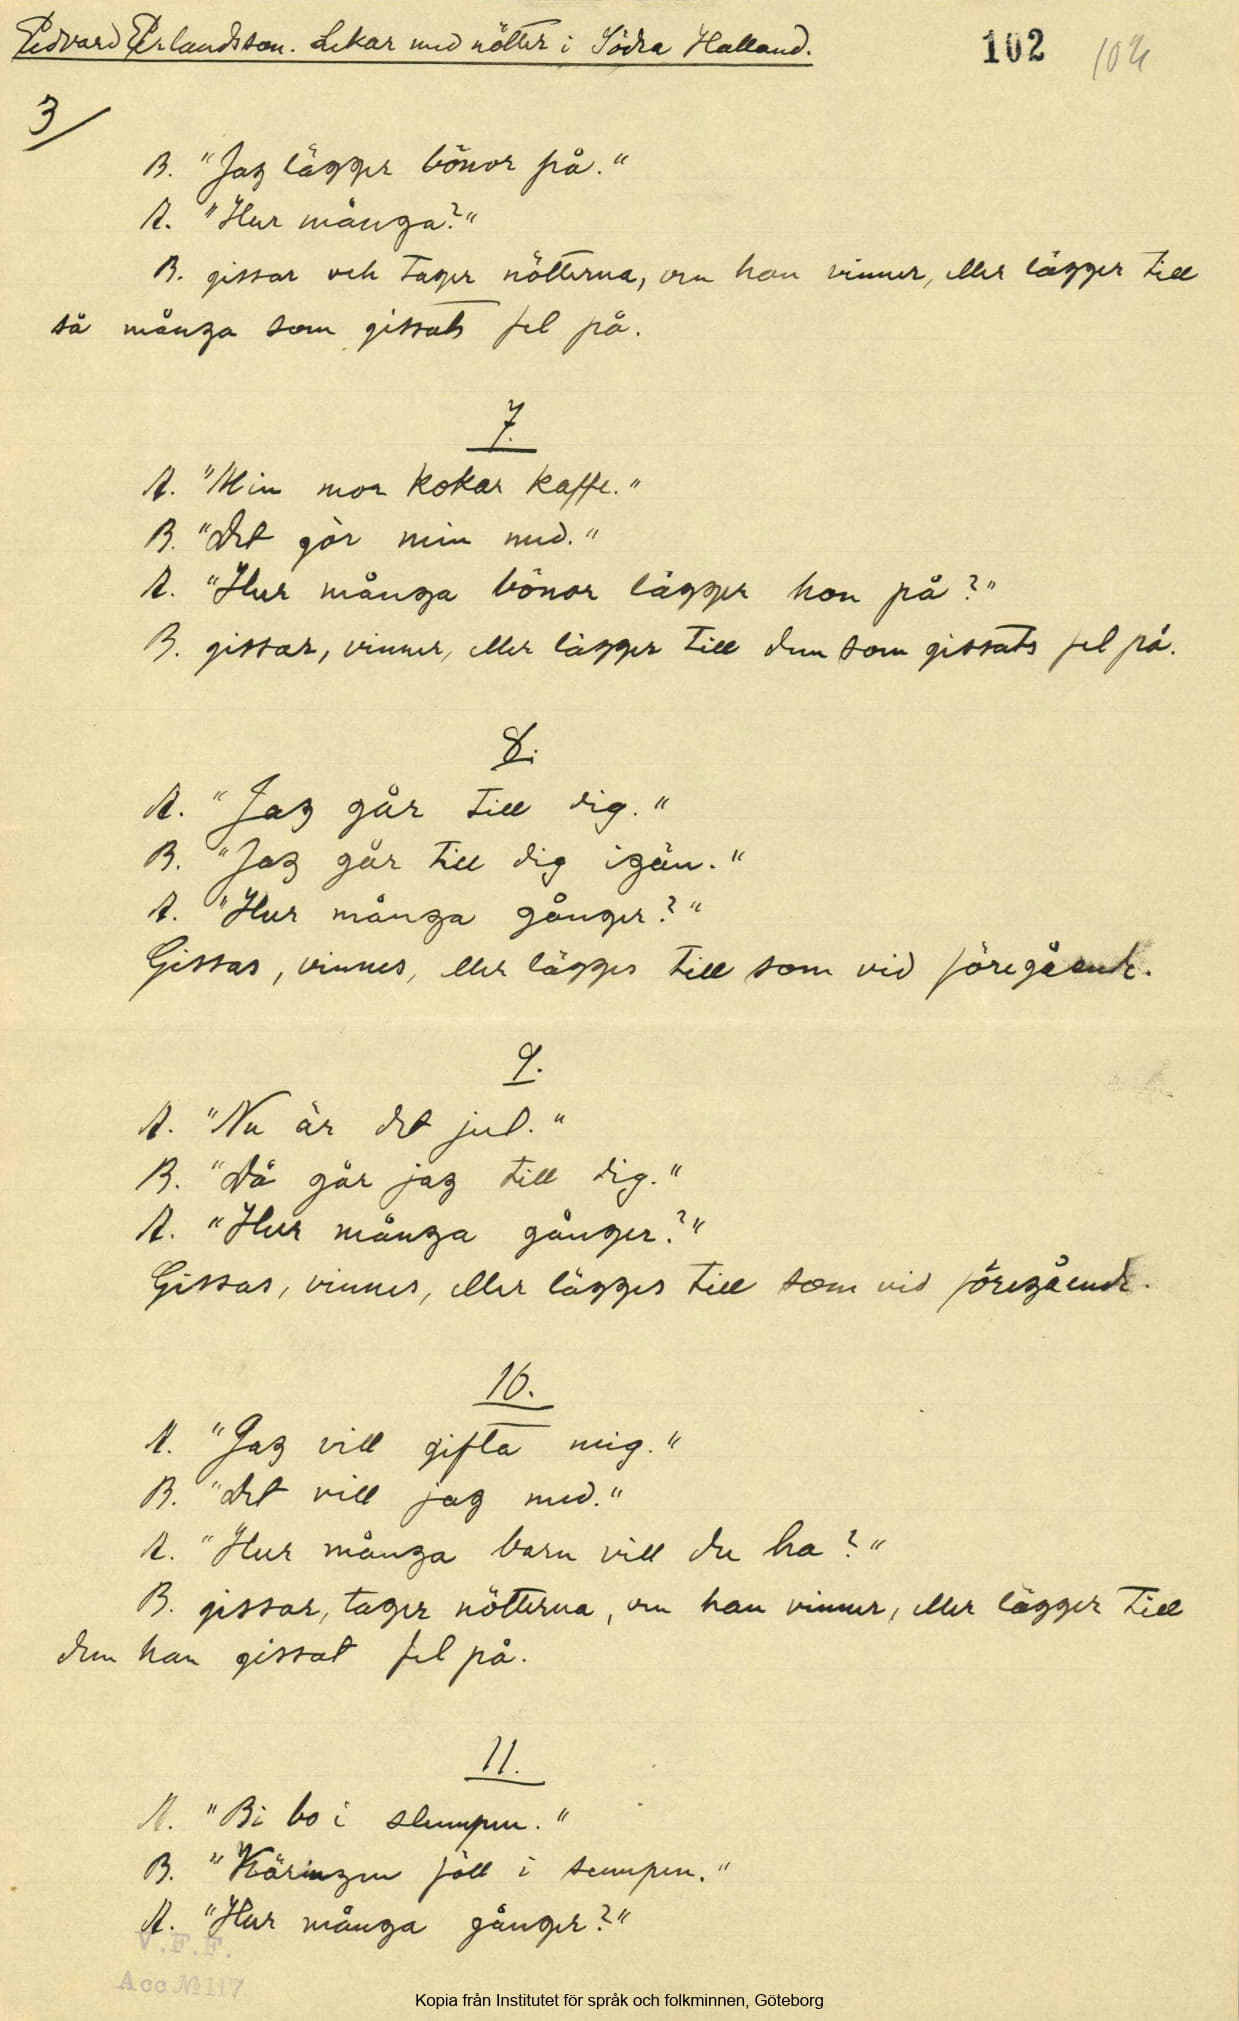 Edvard Erlandsson. Lekar med nötter i Södra Halland.
102 102
3
B. "Jag lägger bönor på."
A. "Hur många?"
B. gissar och tager nötterna, om han vinner, eller lägger till
så många som gissats fel på.
7.
A. "Min mor kokar kaffe."
B. "Det gör min med."
A. "Hur många bönor lägger hon på?"
B. gissar, vinner, eller lägger till dem som gissats fel på.
8.
A. "Jag går till dig."
B. "Jag går till dig igän."
A. "Hur många gånger?"
Gissas, vinnes, eller lägges till som vid föregående.
9.
A. "Nu är det jul."
B. "Då går jag till dig."
A. "Hur många gånger?"
Gissas, vinnes, eller lägges till som vid föregående.
10.
A. "Jag vill gifta mig."
B. "Det vill jag med."
A. "Hur många barn vill du ha?"
B. gissar, tager nötterna, om han vinner, eller lägger till
dem han gissat fel på.
11.
A. "Bi bo i slumpen."
B. "Käringen föll i sumpen."
A. "Hur många gånger?"
V.F.F.
Acc №117
Kopia från Institutet för språk och folkminnen, Göteborg